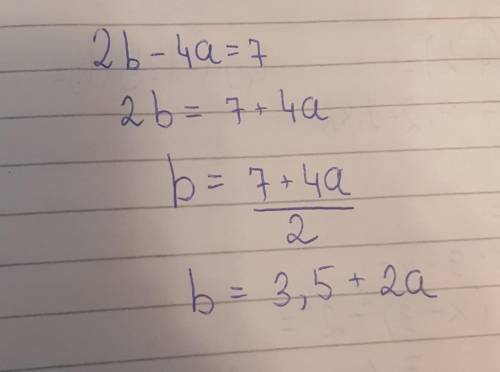 2b - 4a = 7
2b = 7 + 4a
b = 7 + 4a / 2
b = 3,5 + 2a